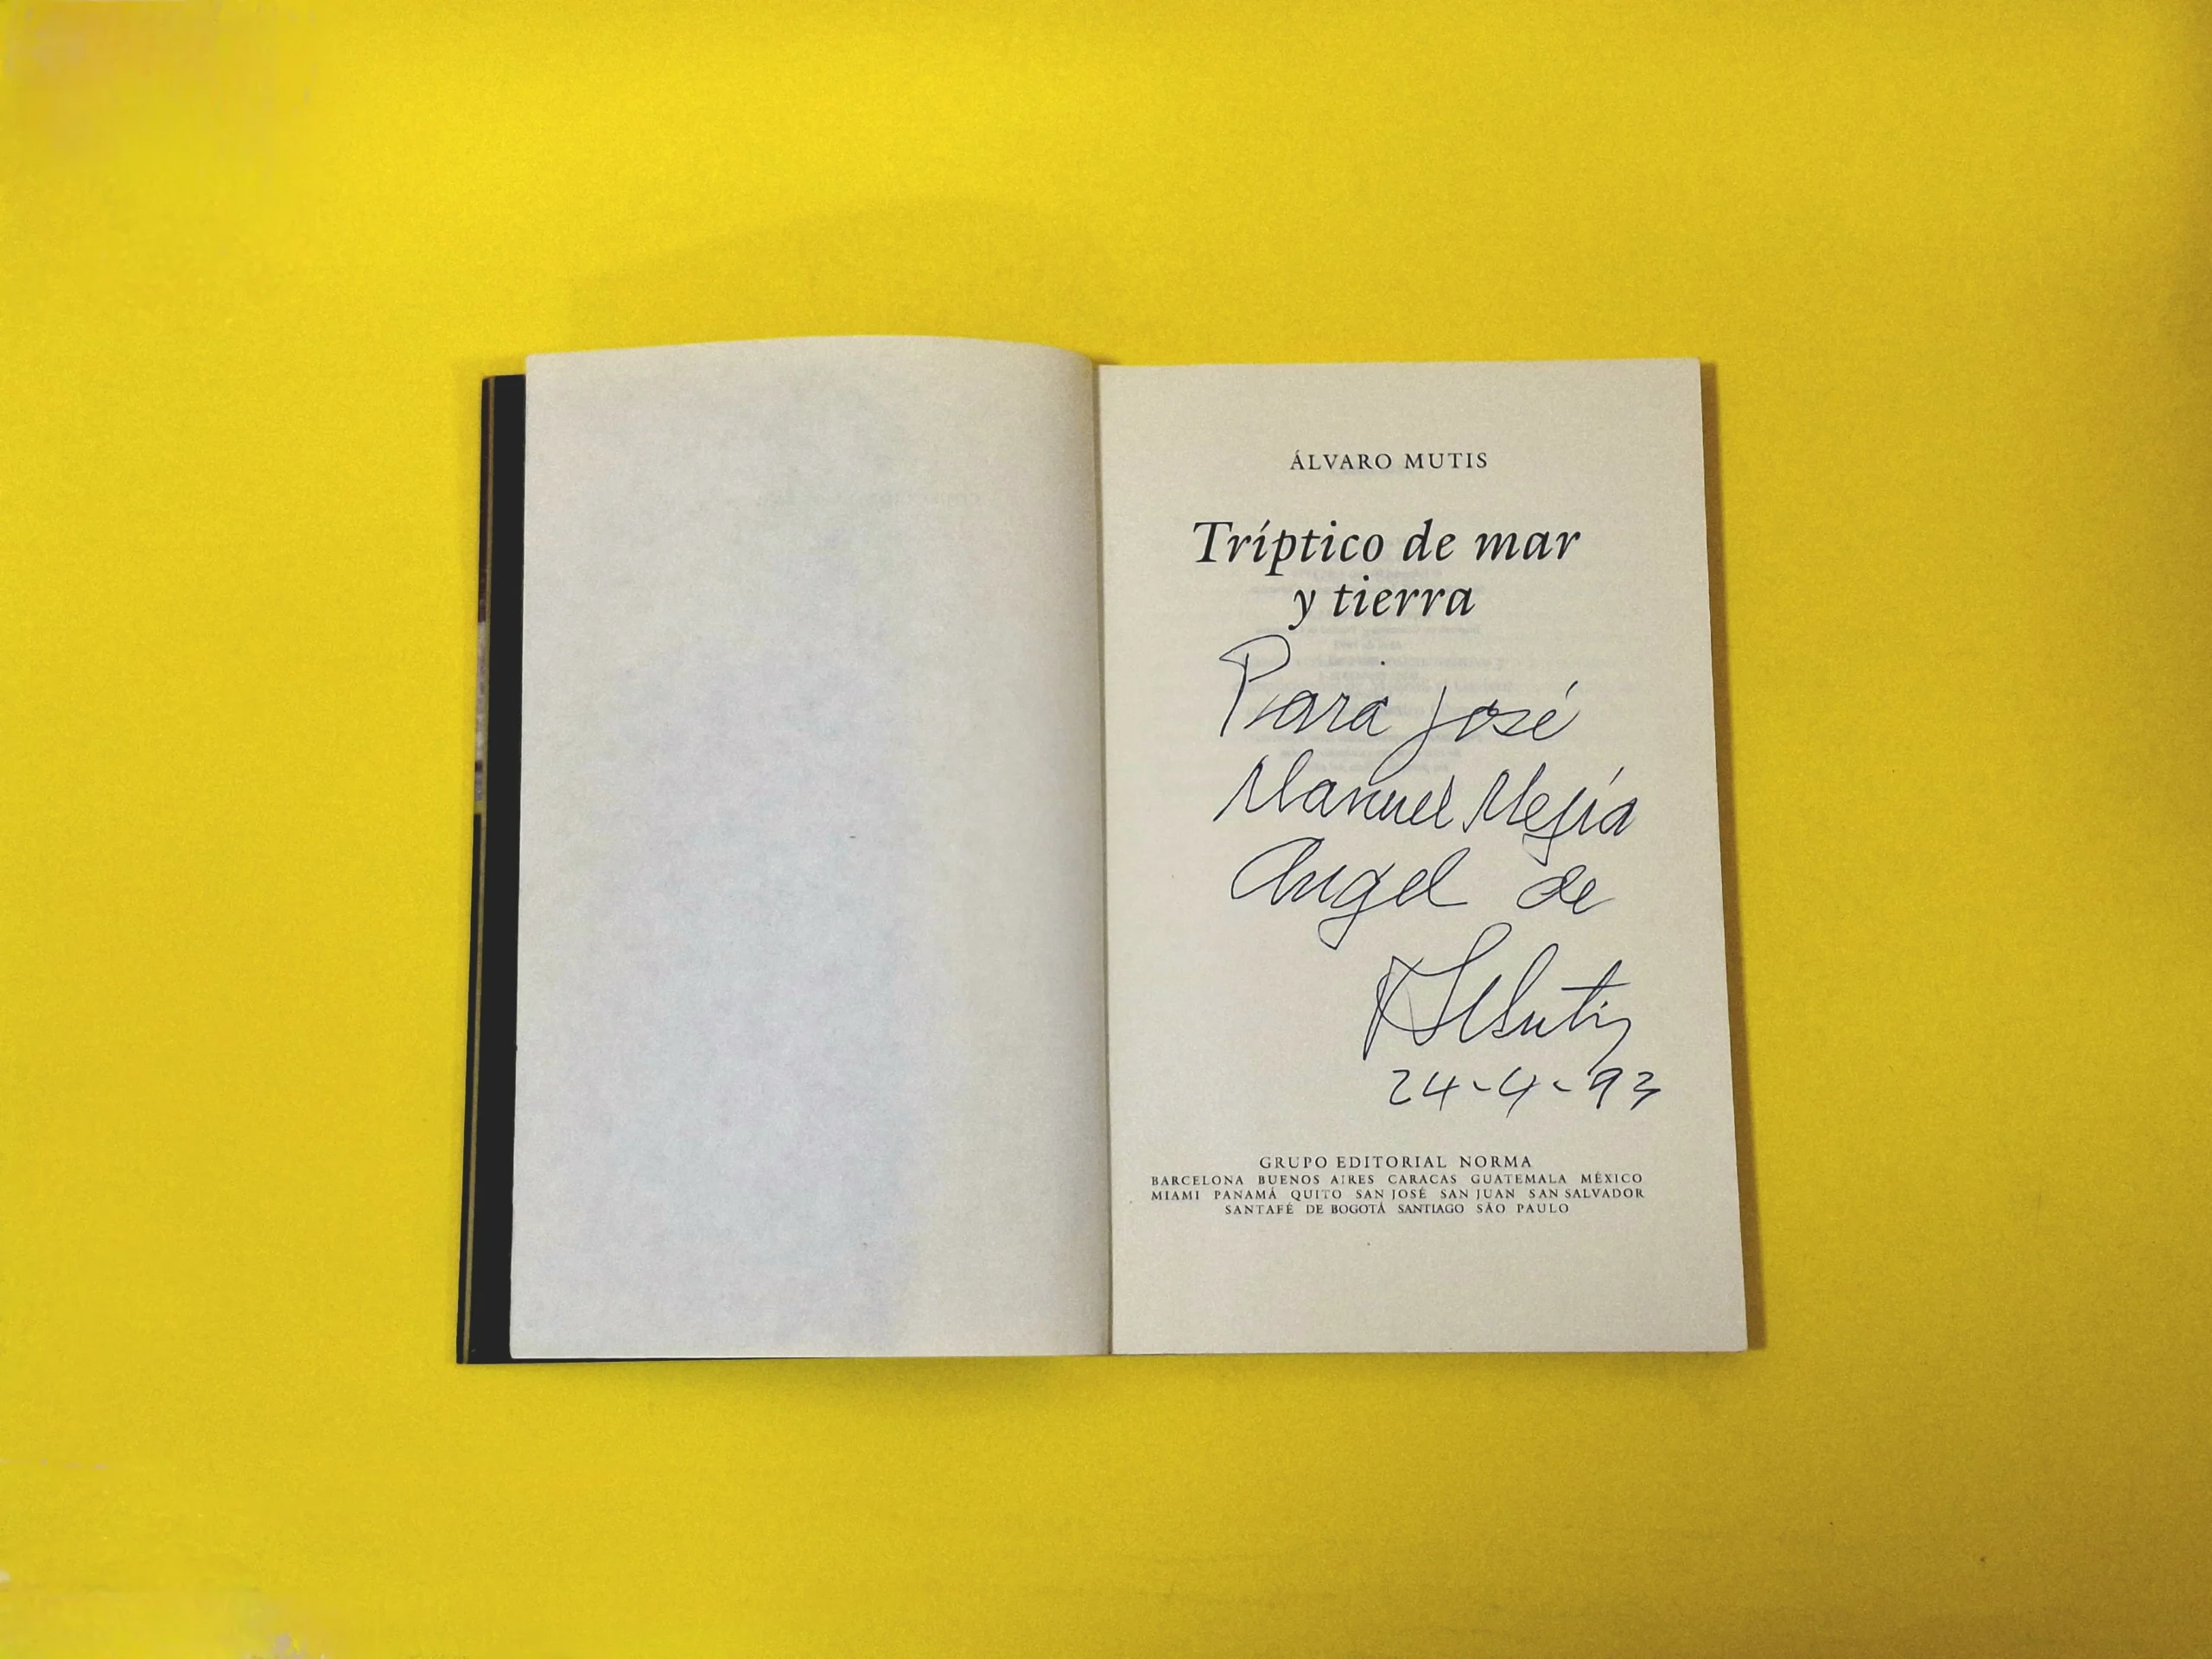 ÁLVARO MUTIS
Tríptico de mar
y tierra
Para José
Manuel Mejía
Angel de
AMutis
24-4-93
GRUPO EDITORIAL NORMA
BARCELONA BUENOS AIRES CARACAS GUATEMALA MÉXICO
MIAMI PANAMÁ QUITO SAN JOSÉ SAN JUAN SAN SALVADOR
SANTAFÉ DE BOGOTÁ SANTIAGO SÃO PAULO